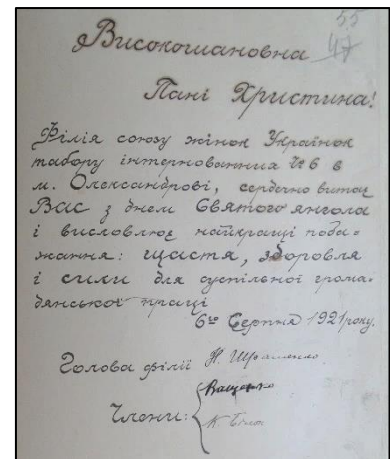 55
47
Високошановна
Пані Христина!
Філія союзу жінок Українок
табору інтернованих № 6 в
м. Олександрові, сердечно витає
Вас з днем Святого янгола
і висловлює найкращі поба-
жання: щастя, здоровля
і сили для суспільної грома-
дянської праці
6го Серпня 1921 року.
Голова філії Н.
Члени: Ващенко
К Біла